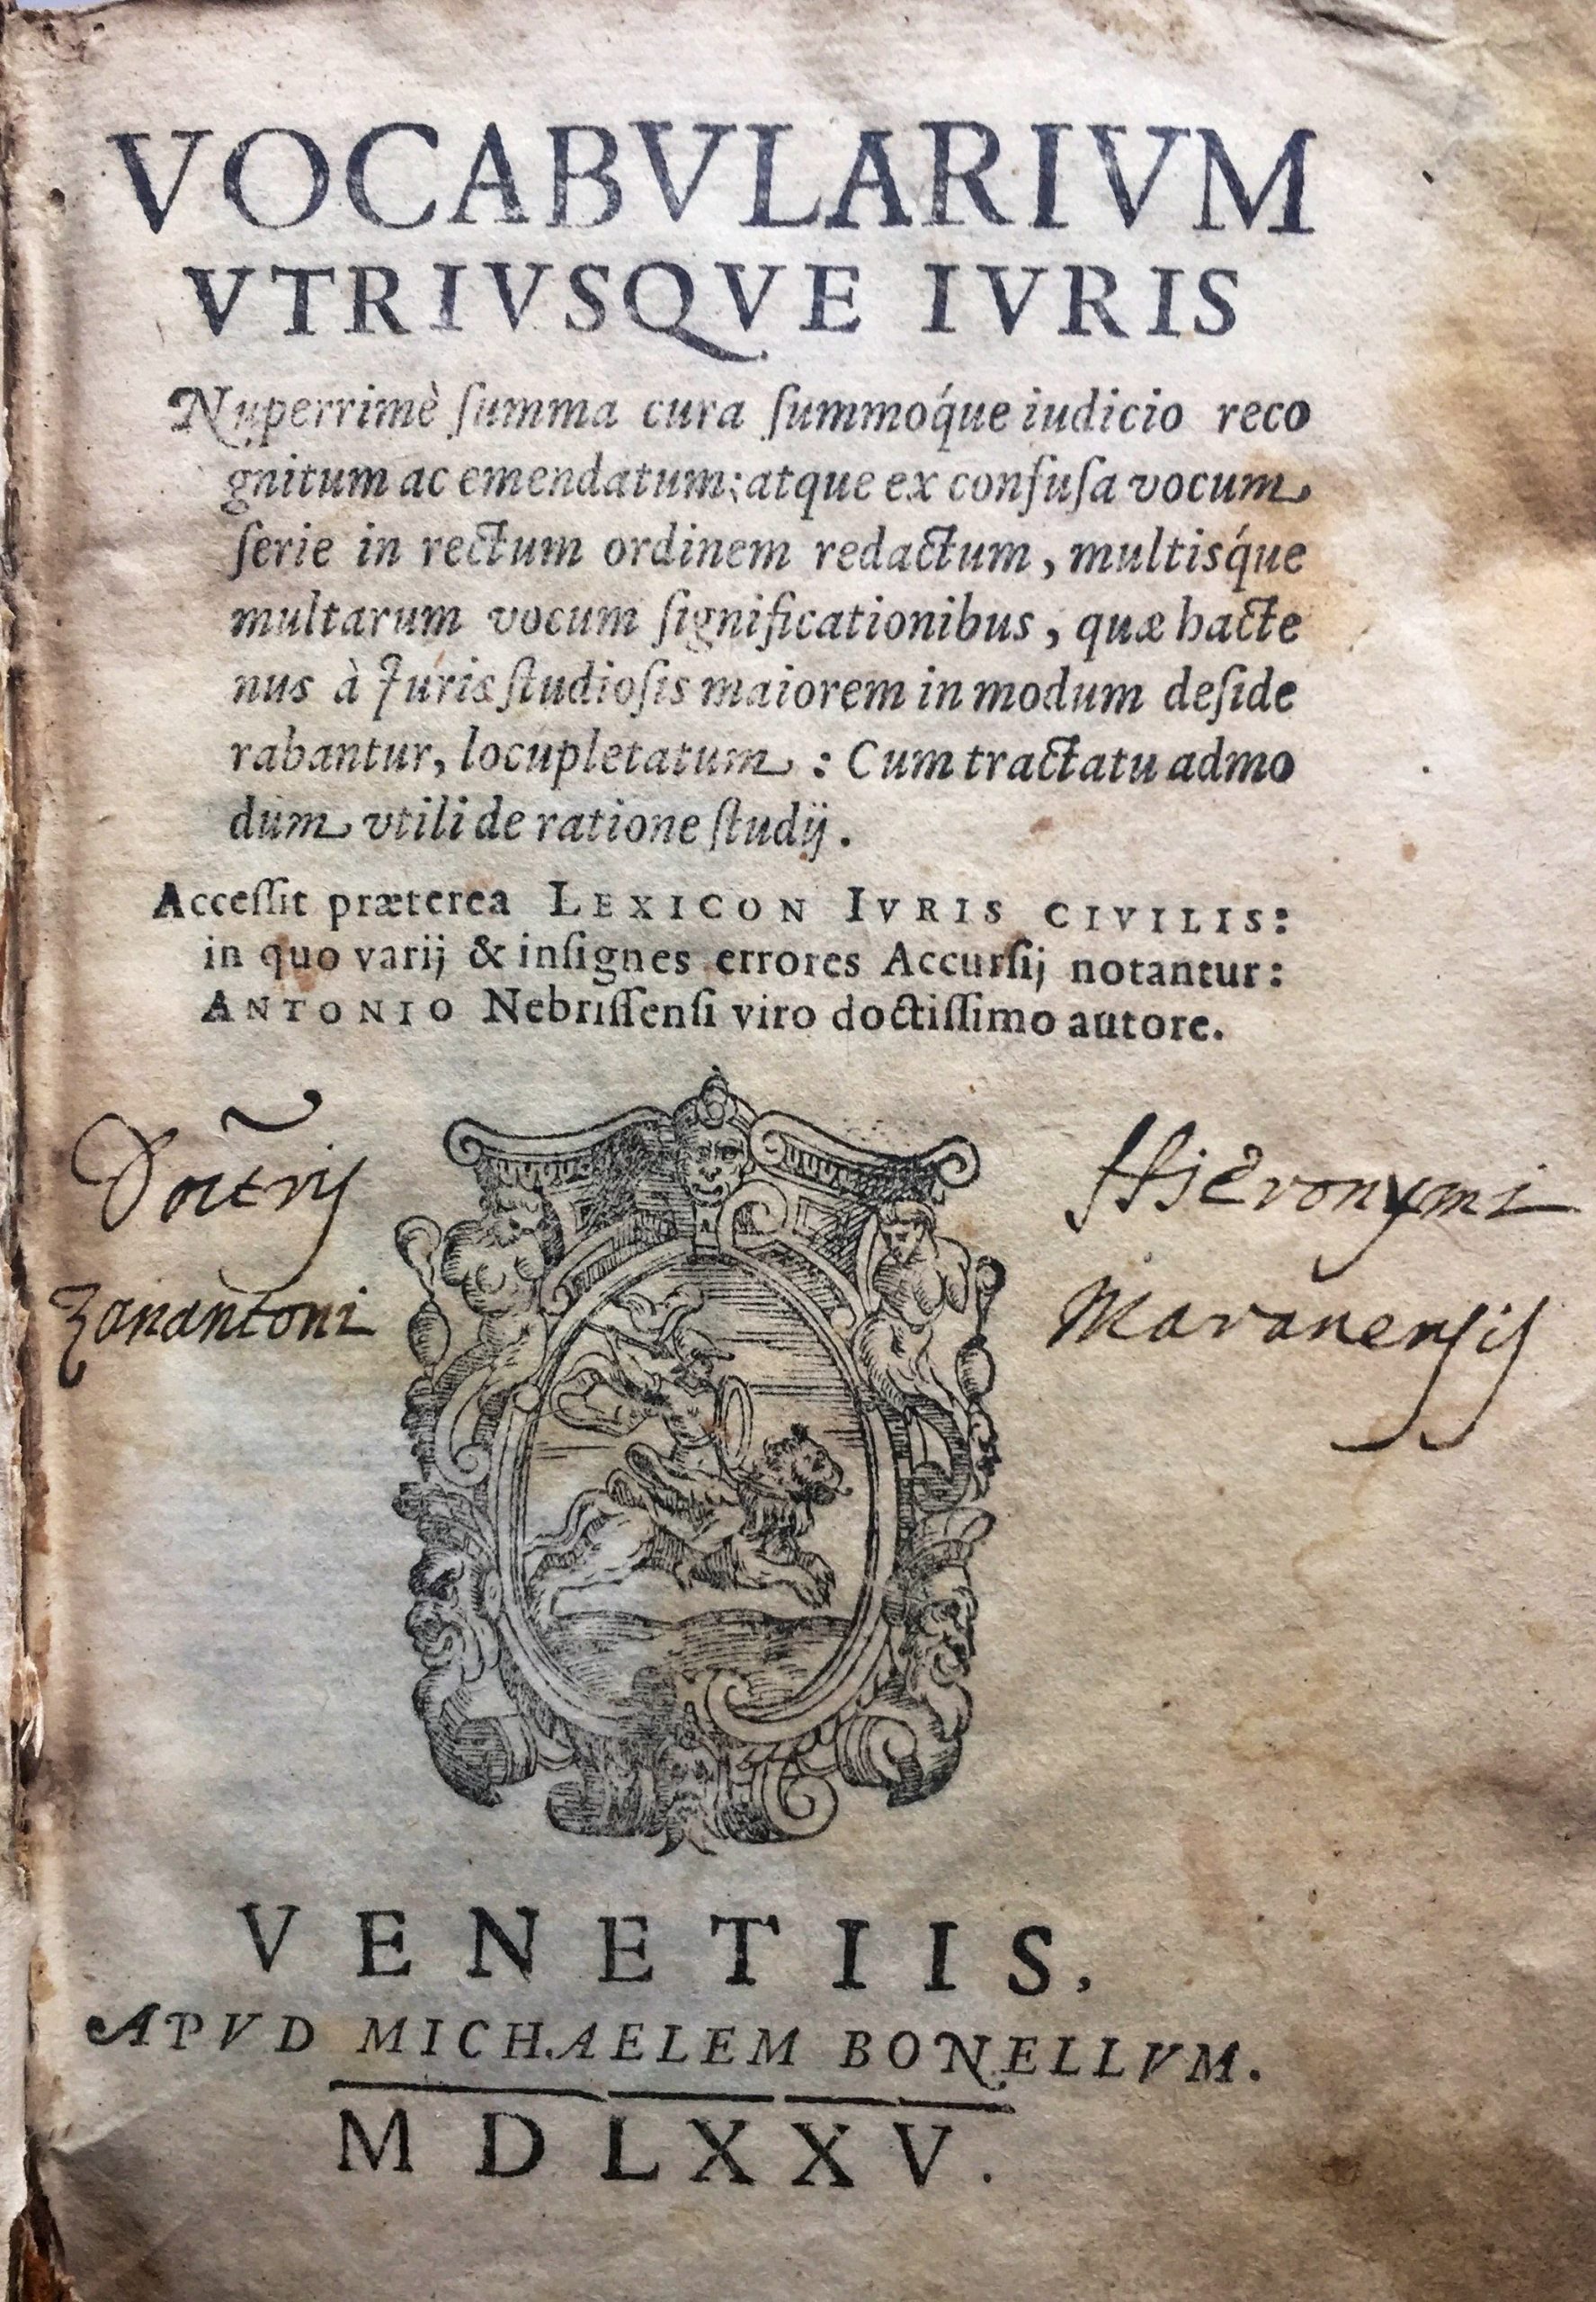 VOCABVLARIVM
VTRIVSQVE IVRIS
Nuperrimè ſumma cura ſummoq́ue iudicio reco
gnitum ac emendatum: atque ex confuſa vocum
ſerie in rectum ordinem redactum, multisq́ue
multarum vocum ſignificationibus, quæ hacte
nus à Juris ſtudioſis maiorem in modum deſide
rabantur, locupletatum : Cum tractatu admo
dum vtili de ratione ſtudij.
Acceſſit præterea LEXICON IVRIS CIVILIS:
in quo varij & inſignes errores Accurſij notantur:
ANTONIO Nebriſſenſi viro doctiſſimo autore.
Hieronymi
Zanantoni
Maranenſis
VENETIIS,
APVD MICHAELEM BONELLVM.
MDLXXV.